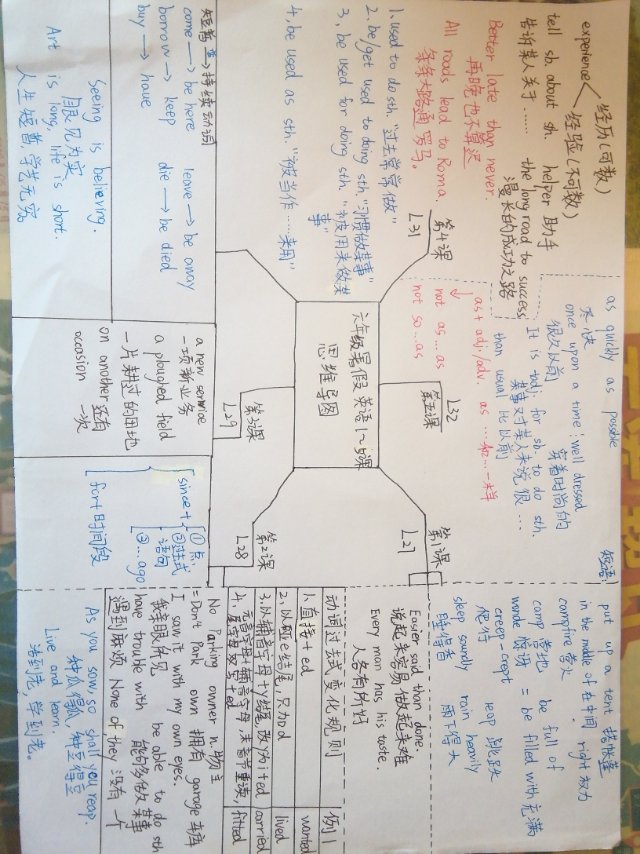 六年级暑假英语1~5课
思维导图
第1课
L27
短语
put up a tent 搭帐篷
in the middle of 在中间 right 权力
campfire 营火
camp 营地 be full of
wonder = be filled with 充满
creep-crept leap 跳跃
爬行
sleep soundly rain heavily
睡得香 雨下得大
Easier said than done.
说起来容易做起来难
Every man has his taste.
人各有所好
动词过去式变化规则 例
1.直接+ed wanted
2.以e结尾,只加d lived
3.以辅音字母+y结尾,改y为i+ed carried
4.元音字母+辅音字母,末音节重读,
双写+ed fitted
第2课
L28
No Parking owner n.物主
=Don't Park own 拥有 garage 车库
I saw it with my own eyes.
我亲眼所见 be able to do sth
have trouble with 能够做某事
遇到麻烦 None of they 没有一个
As you sow, so shall you reap.
种瓜得瓜,种豆得豆
Live and learn.
活到老,学到老。
since+ ①点
②过去式
语句
③...ago
for+时间段
第3课
L29
a new service
一项新业务
a ploughed field
一片耕过的田地
on another 又有
occasion 一次
第4课
L31
experience 经历(可数)
经验(不可数)
tell sb. about sth. helper 助手
告诉某人关于…… the long road to success
漫长的成功之路
Better late than never.
再晚也不算迟
All roads lead to Roma.
条条大路通罗马。
1. used to do sth. "过去常常做"
2. be/get used to doing sth "习惯做某事"
3. be used for doing sth. "被用来做某
事"
4. be used as sth. "被当作……来用"
短暂→持续动词
come → be here leave → be away
borrow → keep die → be died
buy → have
Seeing is believing.
眼见为实
Art is long, life is short.
人生短暂,学艺无穷
L32
第5课
as quickly as possible
尽快
once upon a time well dressed
很久以前 穿着时尚的
It is +adj. for sb. to do sth.
某事对某人来说很……
than usual 比以前
as+ adj./adv. as …和…一样
not as ... as
not so ... as